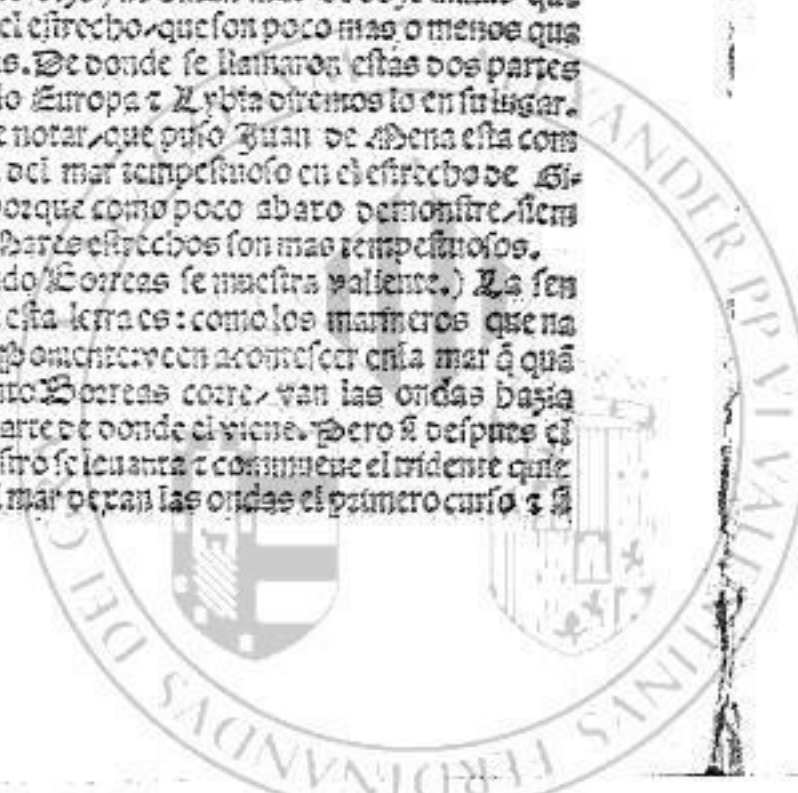 el estrecho, que son poco mas o menos que
s. De donde se llamaron estas dos partes
lo Europa τ Lybia diremos lo en su lugar.
e notar, que puso Juan de Mena esta com
del mar tempestuoso en el estrecho de Gi-
porque como poco abaxo demonstre, siem
Mares estrechos son mas tempestuosos.
do Borreas se muestra valiente.) La sen
esta letra es: como los marineros que na
Poniente: veen acontescer enla mar q̃ quã
nto Borreas corre, van las ondas hazia
arte de donde el viene. Pero si despues el
stro se leuanta τ commueue el tridente que
mar dexan las ondas el primero curso τ si
ANDER PP VI VALENTINVS FERDINANDVS DEI